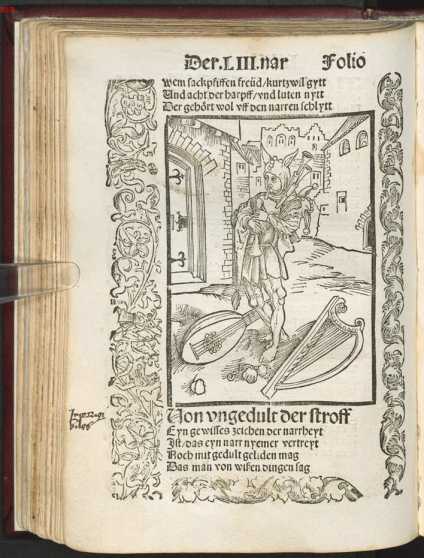 Der.LIII.nar Folio
Wem sackpfiffen freüd/kurtzwil gytt
Und acht der harpff/vnd luten nytt
Der gehört wol vff den narren schlytt
Von vngedult der stroff
Eyn gewisses zeichen der narrheyt
Ist/das eyn narr nyemer vertreyt
Noch mit gedult geliden mag
Das man von wisen dingen sag